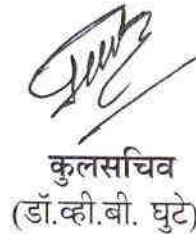 कुलसचिव
(डॉ.व्ही.बी. घुटे)